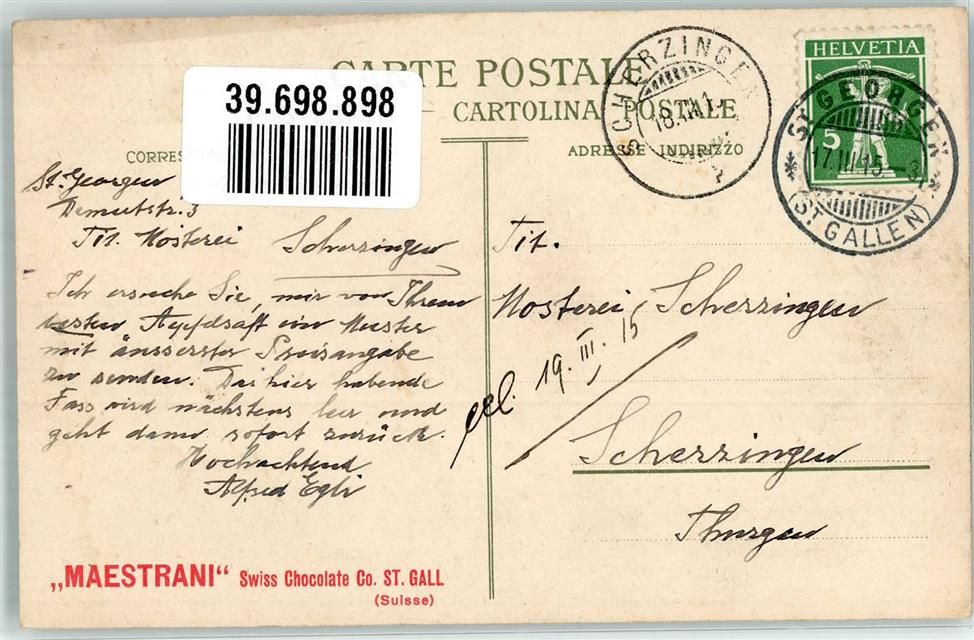 CARTE POSTALE
CARTOLINA POSTALE
39.698.898
CORRES
ADRESSE INDIRIZZO
SCHERZINGEN
18.III.1
HELVETIA
5
ST GEORGEN
17.III.15-3
(ST. GALLEN)
St. Georgen
3
Tit. Mosterei Scherzingen
Ich ersuche Sie, mir von Ihrem
besten Apfelsaft ein Muster
mit äusserster Preisangabe
zu senden. Das hier habende
Fass wird nächstens leer und
geht dann sofort zurück.
Hochachtend
Alfred Egli
Tit.
Mosterei Scherzingen
19. III. 15
Scherzingen
Thurgau
„MAESTRANI“ Swiss Chocolate Co. ST. GALL
(Suisse)